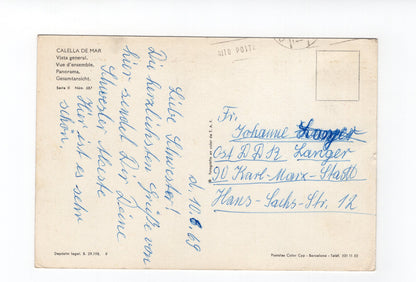 CALELLA DE MAR
Vista general.
Vue d'ensemble.
Panorama.
Gesamtansicht.
Serie II Núm. 687
d. 10.6.69
Liebe Schwester!
Die herzlichsten Grüße von
hier sendet Dir Deine
Schwester
Hier ist es sehr
schön.
Fr.
Johanne Langer
Ost DDR Langer
90 Karl-Marx-Stadt
Hans-Sachs-Str. 12
Depósito legal. B. 29.108.
Postales Color Cyp - Barcelona - Teléf.